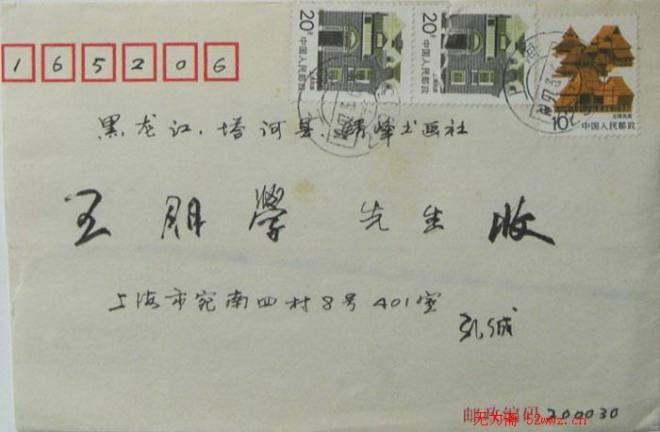 20分
中国人民邮政
20分
中国人民邮政
10分
中国人民邮政
165206
黑龙江.塔河县.精峰书画社
王朋学 先生 收
上海市宛南四村8号401室
孔诚
邮政编码 200030
无为斋 52wwz.cn